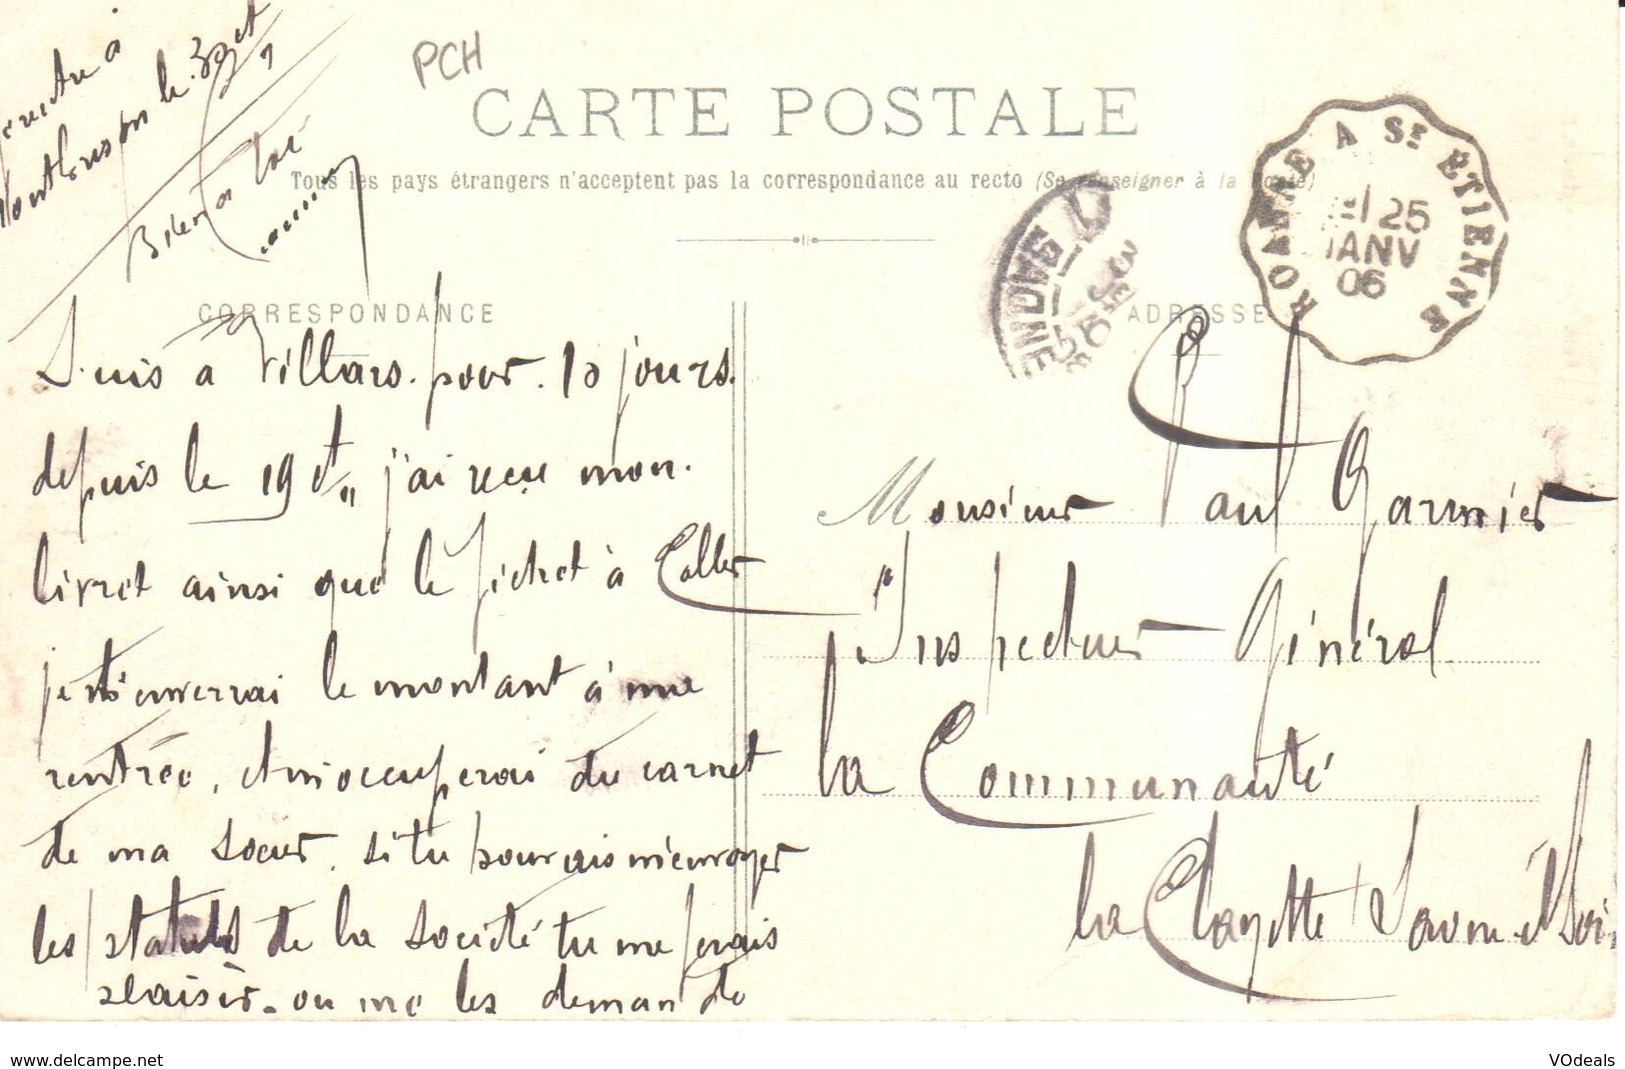 PCH
CARTE POSTALE
Tous les pays étrangers n'acceptent pas la correspondance au recto (Se renseigner à la Poste)
CORRESPONDANCE
ADRESSE
ROANNE A St ETIENNE
25
JANV
06
le 30 ct
Bien à toi
Suis a Villars. pour. 10 jours.
depuis le 19 ct j'ai reçu mon.
livret ainsi que le à Coller
je t'enverrai le montant à ma
rentrée, et m'occuperai du carnet
de ma soeur. si tu pourrais m'envoyer
les statuts de la Société tu me ferais
plaisir. on me les demande
Monsieur Paul Garnier
Inspecteur Général
la Communauté
la Clayette Saone et Loire
www.delcampe.net
VOdeals